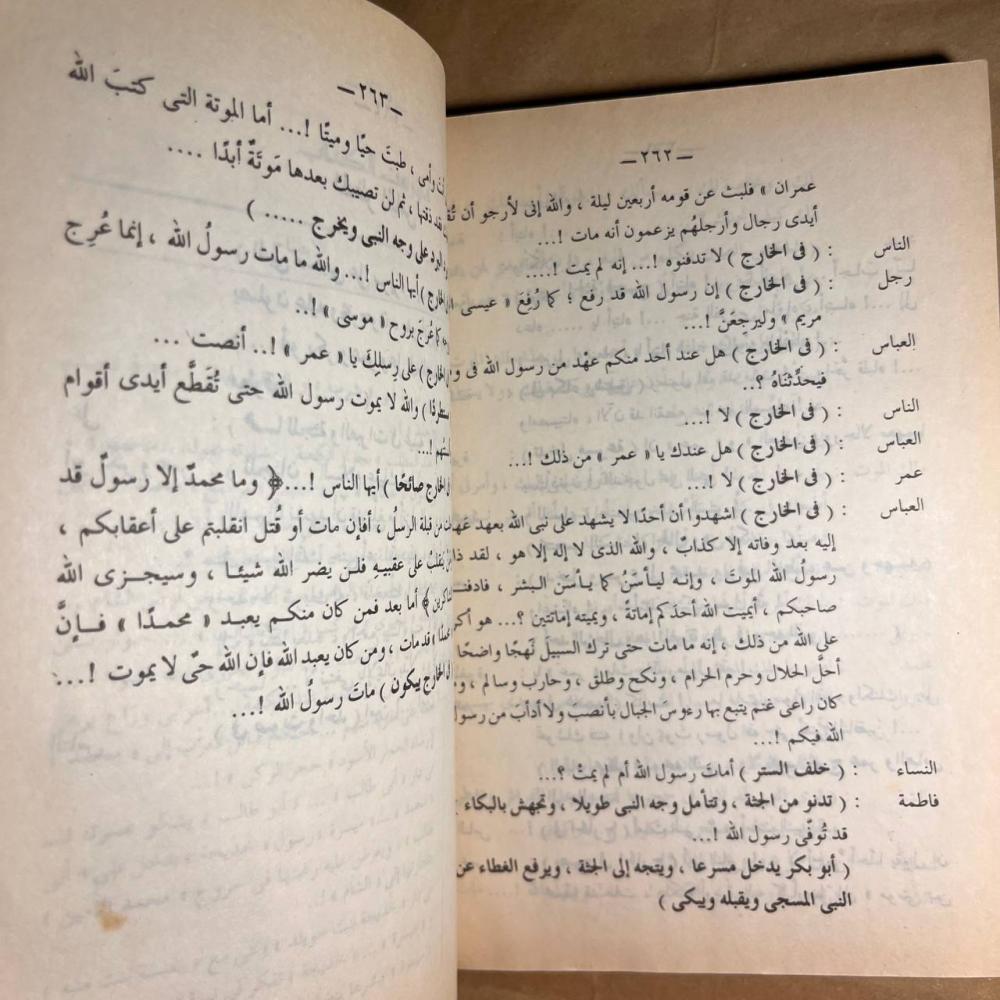 — ٢٦٢ —
عمران » فلبث عن قومه أربعين ليلة ، والله إنى لأرجو أن
أيدى رجال وأرجلهُم يزعمون أنه مات !...
الناس : ( فى الخارج ) لا تدفنوه !... إنه لم يمت !....
رجل : ( فى الخارج ) إن رسول الله قد رفع ؛ كما رُفِعَ « عيسى
مريم » وليرجِعَنَّ !...
العباس : ( فى الخارج ) هل عند أحد منكم عهْد من رسول الله فى
فيحدِّثنَاهُ ؟..
الناس : ( فى الخارج ) لا !...
العباس : ( فى الخارج ) هل عندك يا « عمر » من ذلك !...
عمر : ( فى الخارج ) لا !...
العباس : ( فى الخارج ) اشهدوا أن أحدًا لا يشهد على نبى الله بعهد
إليه بعد وفاته إلا كذابٌ ، والله الذى لا إله إلا هو ، لقد
رسولُ الله الموتَ ، وإنه ليأسَنُ كما يأسَن البشر ،
صاحبكم ، أيميت الله أحدَكم إماتةً ، ويميته إماتتين ؟... هو
على الله من ذلك ، إنه ما مات حتى ترك السبيلَ نَهجًا واضحًا
أحلَّ الحلال وحرم الحرام ، ونكح وطلق ، وحارب وسالم ،
كان راعى غنم يتبع بها رءوسَ الجبال بأنصب ولا أدأبَ من
الله فيكم !...
النساء : ( خلف الستر ) أماتَ رسول الله أم لم يمتْ ؟...
فاطمة : ( تدنو من الجثة ، وتتأمل وجه النبى طويلا ، وتجهش بالبكاء )
قد تُوفّى رسول الله !...
( أبو بكر يدخل مسرعا ، ويتجه إلى الجثة ، ويرفع الغطاء عن
النبى المسجى ويقبله ويبكى )
— ٢٦٣ —
وأمى ، طبتَ حيًا وميتًا !... أما الموتة التى كتبَ الله
فقد ذقتها ، ثم لن تصيبك بعدها مَوتَةٌ أبدًا ....
على وجه النبى ويخرج ..... )
الخارج ) أيها الناس !... والله ما مات رسولُ الله ، إنما عُرِج
كما عُرجَ بروح « موسى » !..
الخارج ) على رِسلِكَ يا « عمر » !.. أنصت ...
والله لا يموت رسول الله حتى تُقَطَّع أيدى أقوام
الخارج صائحًا ) أيها الناس !...﴿ وما محمدٌ إلا رسولٌ قد
من قبلهِ الرسلُ ، أفإن مات أو قُتل انقلبتم على أعقابكم ،
ينقلبْ على عقبيهِ فلن يضر الله شيئا ، وسيجزى الله
﴾ أما بعد فمن كان منكم يعبد « محمدًا » فإنَّ
قد مات ، ومن كان يعبد الله فإن الله حىّ لا يموت !...
الخارج يبكون ) ماتَ رسولُ الله !...